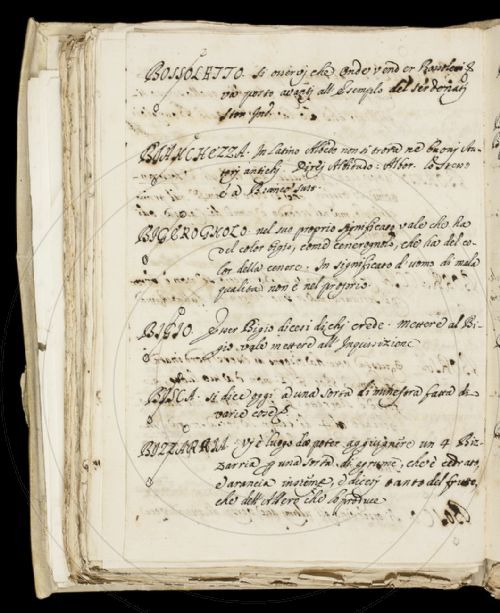 BOSSOLETTO. Si osservi che onde vender
va posto avanti all'Esempio del
BIANCHEZZA. In Latino Albedo non si trova ne buoni Au-
tori antichi. Albitudo: Albor. lo stesso
è a Bianco sust.
BIGEROGNOLO. nel suo proprio significato vale che ha
del color bigio, come cenerognolo, che ha del co-
lor della cenere. In significato d'uomo di mala
qualità non è nel proprio.
BIGIO. Esser Bigio dicesi di chi crede. Mettere al Bi-
gio vale mettere all'Inquisizione
BISCA. si dice oggi a una sorta di minestra fatta di
varie cose
BIZZARRIA. Vi è luogo da poter aggiugnere un 4 Biz-
zarria una sorta di agrume, che è cedrato,
e arancia insieme, e dicesi tanto del frutto,
che dell'Albero che lo produce